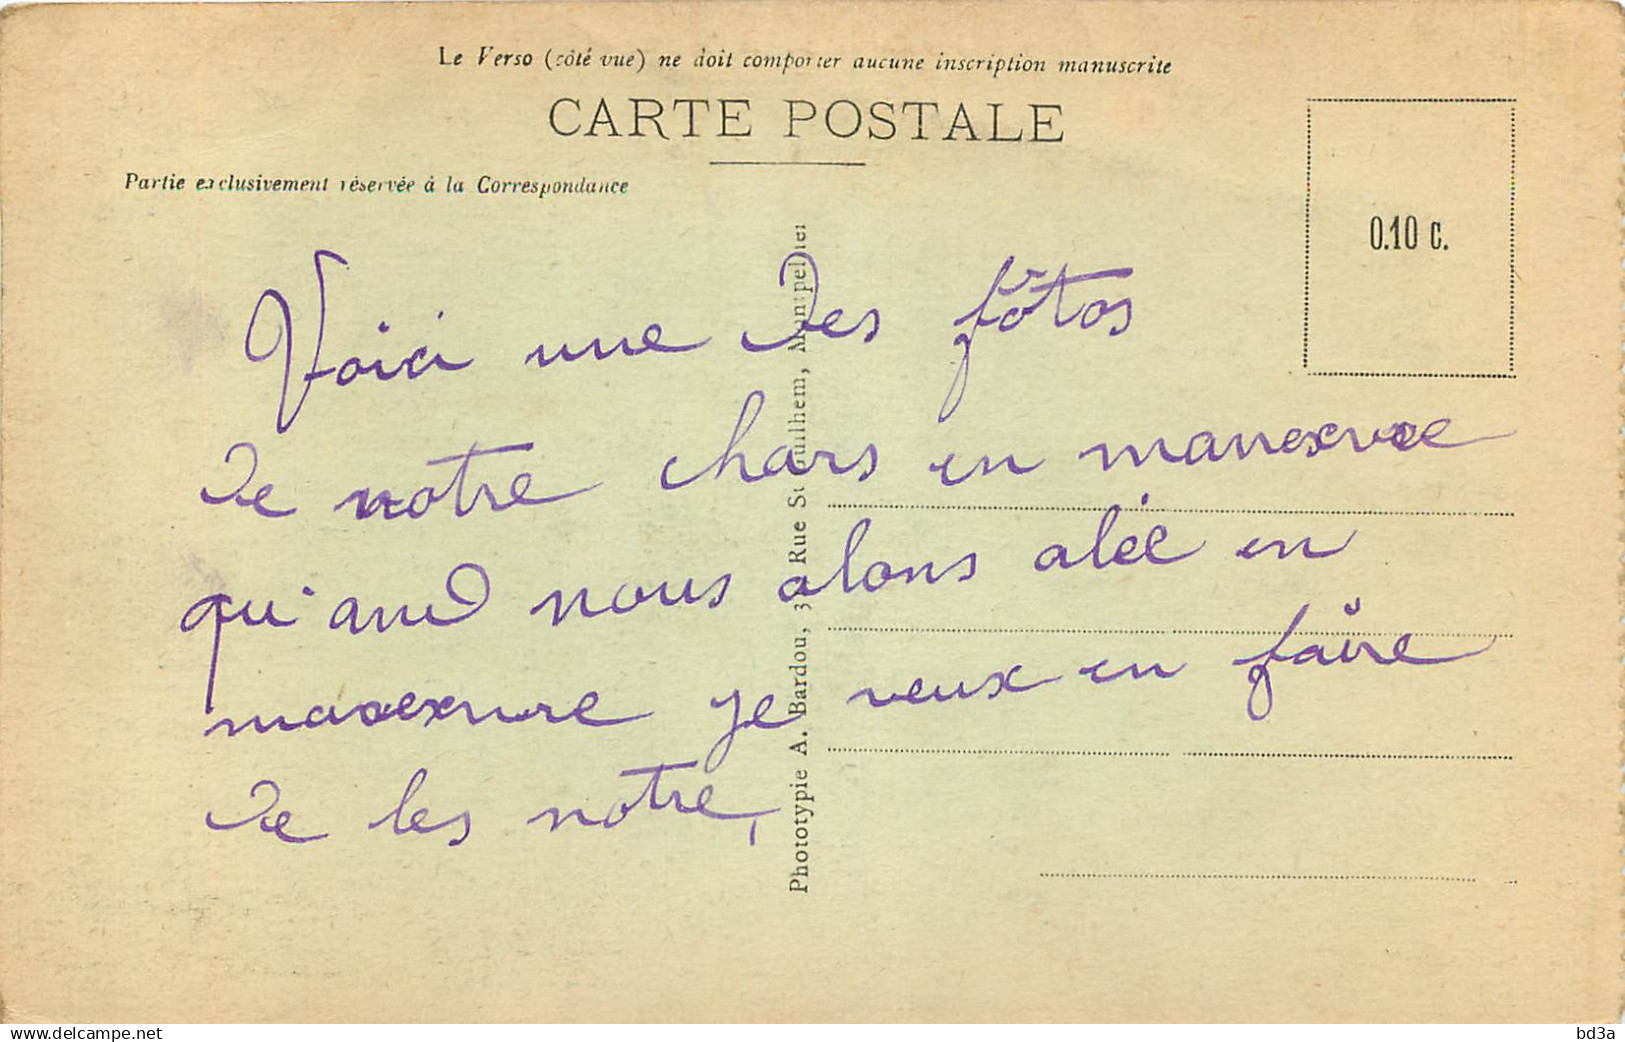 Le Verso (côté vue) ne doit comporter aucune inscription manuscrite
CARTE POSTALE
Partie exclusivement réservée à la Correspondance
0.10 c.
Voici une des fôtos
de notre chars en manexvre
qu'and nous alons alée en
manexvre je veux en faire
de les notre,
Phototypie A. Bardou, Rue St Guilhem, Montpellier
www.delcampe.net
bd3a